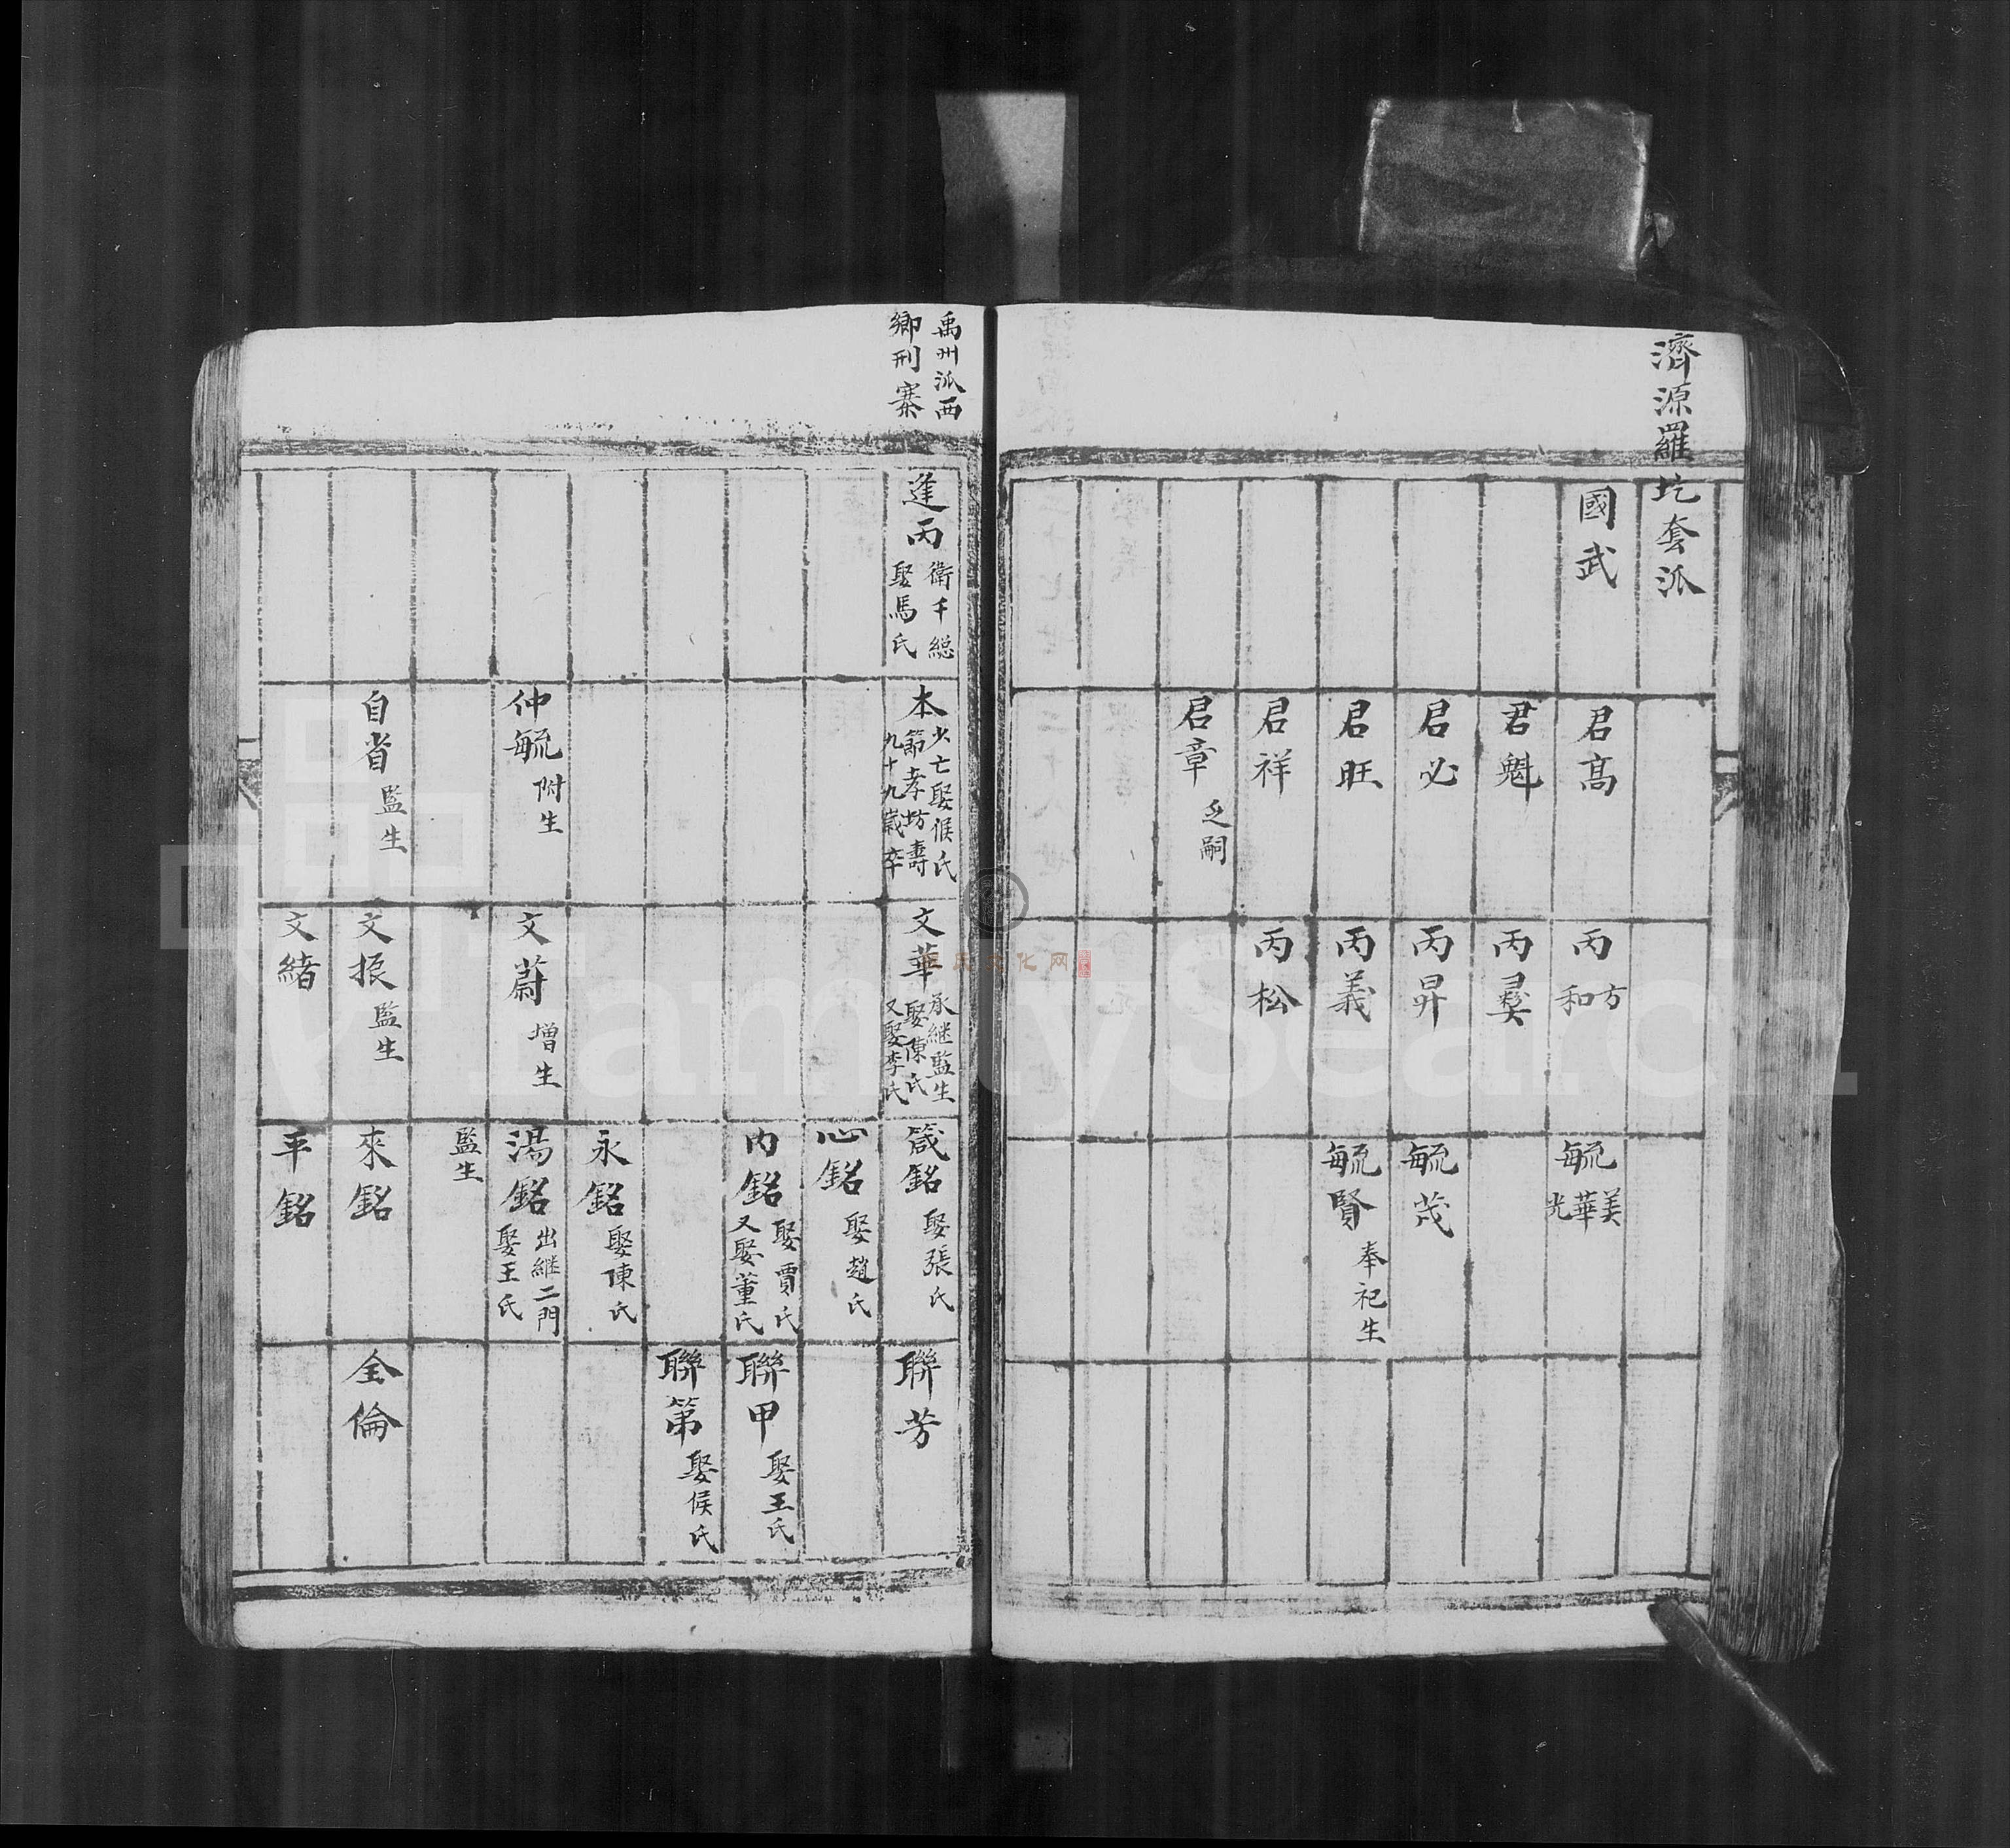 濟源羅圪套派
國武
君高
君魁
君必
君旺
君祥
君章 乏嗣
丙方和
丙彛
丙昇
丙義
丙松
毓美華光
毓茂
毓賢 奉祀生
禹州派西
鄉刑寨
進丙 衛千総
娶馬氏
本 少亡娶侯氏
節孝坊壽
九十九歲卒
仲毓 附生
自省 監生
文華 承継監生
娶陳氏
又娶李氏
文蔚 增生
文振 監生
文緒
箴銘 娶張氏
心銘 娶趙氏
内銘 娶賈氏
又娶董氏
永銘 娶陳氏
湯銘 出継二門
娶王氏
監生
來銘
平銘
聯芳
聯甲 娶王氏
聯第 娶侯氏
全倫
FamilySearch